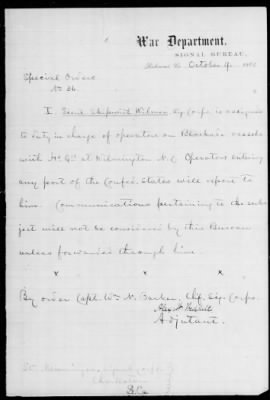 War Department,
SIGNAL BUREAU.
October 4,
Special Orders
No 36.
I. Skipwith Wilmer, Sig Corps is assigned
to duty in charge of operators on Blockade vessels
with Hd Qrs at Wilmington N.C. Operators entering
any port of the Confed. States will report to
him. Communications pertaining to the sub
ject will not be considered by this Bureau
unless forwarded through him.
x x x
By order Capt. Wm N. Barker, Chf. Sig. Corps.
Adjutant.